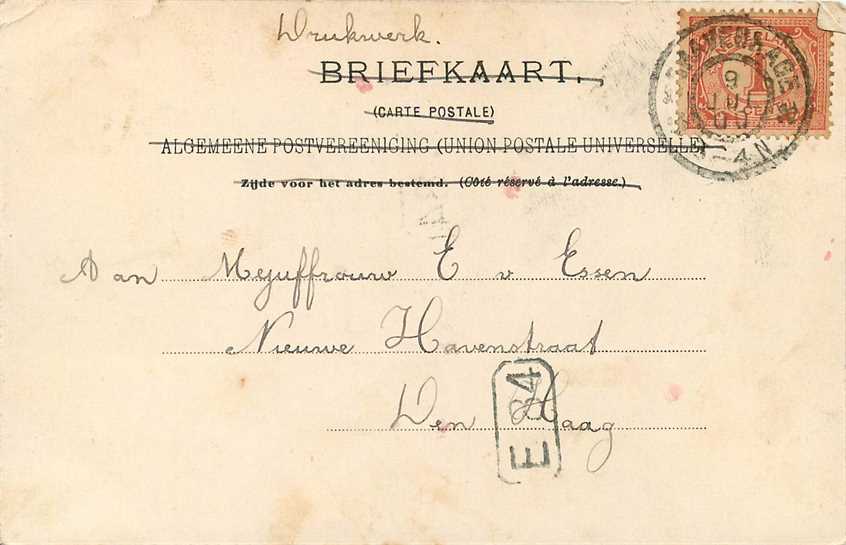 Drukwerk.
BRIEFKAART.
(CARTE POSTALE)
ALGEMEENE POSTVEREENIGING (UNION POSTALE UNIVERSELLE)
Zijde voor het adres bestemd. (Côté réservé à l'adresse.)
Aan Mejuffrouw E v Essen
Nieuwe Havenstraat
Den Haag
E 34